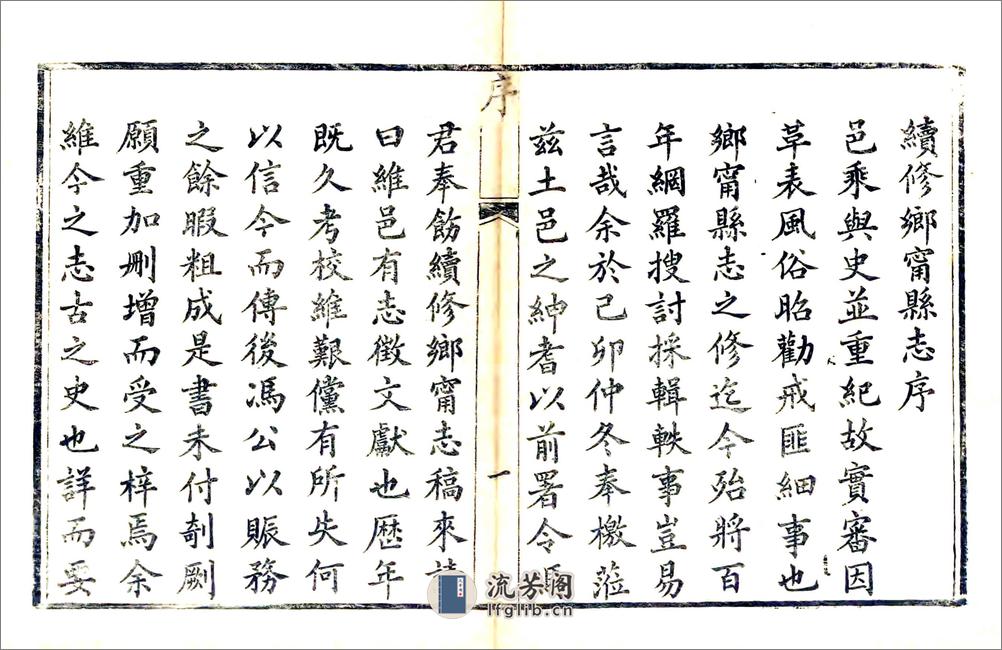 續修鄉甯縣志序
邑乘與史並重紀故實審因
革表風俗昭勸戒匪細事也
鄉甯縣志之修迄今殆將百
年網羅搜討採輯軼事豈易
言哉余於己卯仲冬奉檄蒞
茲土邑之紳耆以前署令
序
一
君奉飭續修鄉甯志稿來
曰維邑有志徵文獻也歷年
既久考校維艱儻有所失何
以信今而傳後馮公以賑務
之餘暇粗成是書未付剞劂
願重加刪增而受之梓焉余
維今之志古之史也詳而要
流芳阁
lfglib.cn